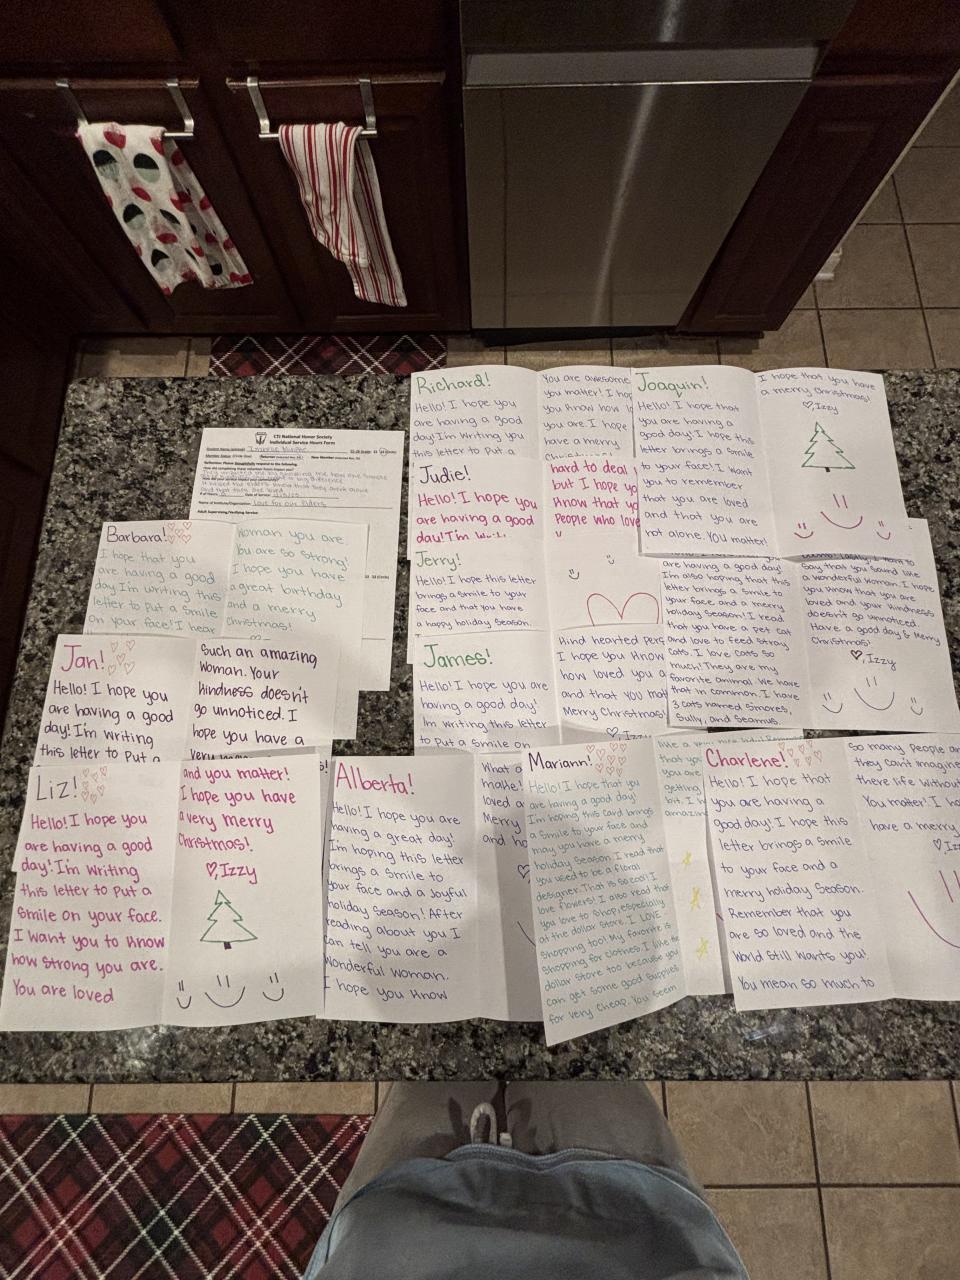 CTI National Honor Society
Individual Service Hours Form
Richard!
Hello! I hope you
are having a good
day! I'm writing you
this letter to put a
You are awesome
you matter! I
you know how
you are. I hope
have a merry
Joaquin!
Hello! I hope that
you are having a
good day! I hope this
letter brings a smile
to your face! I want
you to remember
that you are loved
and that you are
not alone. You matter!
I hope that you have
a merry Christmas!
♡, Izzy
Judie!
Hello! I hope you
are having a good
day! I'm
hard to deal
but I hope
know that
people who love
Jerry!
Hello! I hope this letter
brings a smile to your
face and that you have
a happy holiday season.
James!
Hello! I hope you are
having a good day!
I'm writing this letter
to put a smile on
kind hearted
I hope you know
how loved you a
and that you
Merry Christmas
♡, Izzy
are having a good day!
I'm also hoping that this
letter brings a smile to
your face and a merry
holiday season! I read
that you have a pet cat
and love to feed stray
cats. I love cats so
much! They are my
favorite animal. We have
that in common. I have
3 cats named Smores,
Sully, and Seamus.
say that you sound like
a wonderful woman. I hope
you know that you are
loved and your kindness
doesn't go unnoticed.
Have a good day & Merry
Christmas!
♡, Izzy
Barbara!
I hope that you
are having a good
day! I'm writing this
letter to put a smile
on your face! I hear
woman you are.
You are so strong!
I hope you have
a great birthday
and a merry
Christmas!
Jan!
Hello! I hope you
are having a good
day! I'm writing
this letter to put a
such an amazing
woman. Your
kindness doesn't
go unnoticed. I
hope you have a
very
Liz!
Hello! I hope you
are having a good
day! I'm writing
this letter to put a
smile on your face.
I want you to know
how strong you are.
You are loved
and you matter!
I hope you have
a very merry
Christmas!
♡, Izzy
Alberta!
Hello! I hope you are
having a great day!
I'm hoping this letter
brings a smile to
your face and a joyful
holiday season! After
reading about you I
can tell you are a
wonderful woman.
I hope you know
What a
make!
loved a
Merry
and
Mariann!
Hello! I hope that you
are having a good day!
I'm hoping this card brings
a smile to your face and
may you have a merry
holiday season. I read that
you used to be a floral
designer. That is so cool! I
love flowers! I also read that
you love to shop, especially
at the dollar store. I LOVE
shopping too! My favorite is
shopping for clothes. I like the
dollar store too because you
can get some good supplies
for very cheap. You seem
Charlene!
Hello! I hope that
you are having a
good day! I hope this
letter brings a smile
to your face and a
merry holiday season.
Remember that you
are so loved and the
world still wants you!
You mean so much to
so many people an
they can't imagine
there life without
You matter! I ho
have a merry
♡, Iz